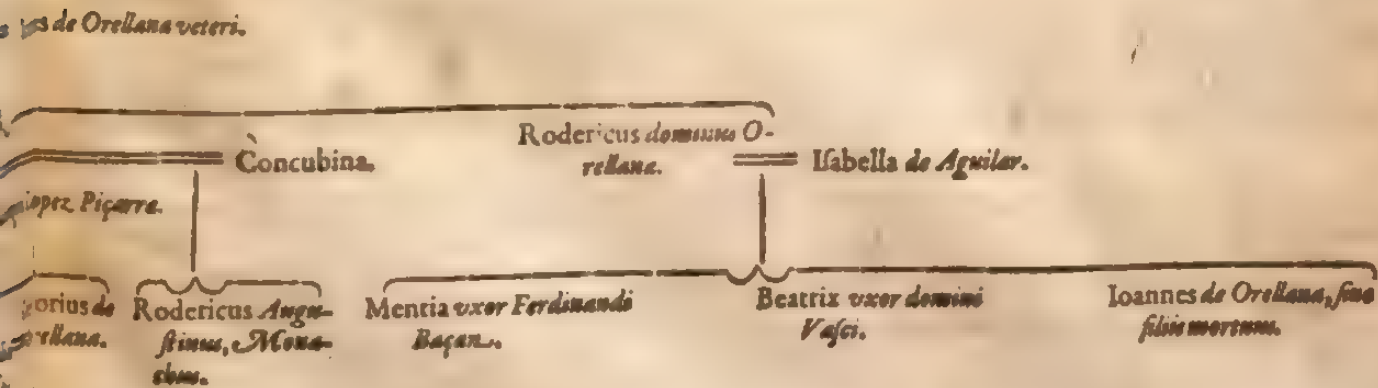 de Orellana veteri.
Rodericus dominus O-
rellana.
Concubina.
Iſabella de Aguilar.
Piçarra.
de
Rodericus Augu-
ſtinus, Mona-
chus.
Mentia vxor Ferdinandi
Baçan.
Beatrix vxor domini
Vaſci.
Ioannes de Orellana, ſine
filiis mortuus.